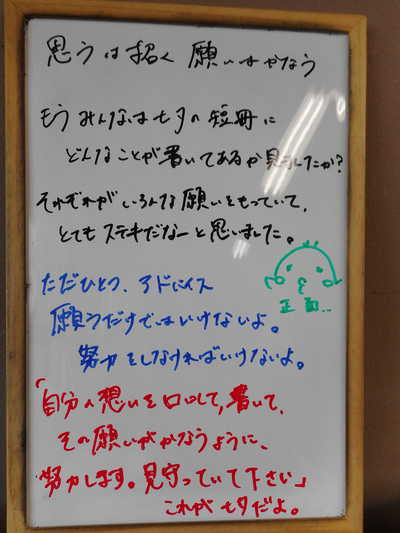 思うは招く 願いはかなう
もうみんなは七夕の短冊に
どんなことが書いてあるか見ましたか?
それぞれがいろんな願いをもっていて、
とてもステキだなーと思いました。
正面..
ただひとつ、アドバイス
願うだけではいけないよ。
努力をしなければいけないよ。
「自分の想いを口にして、書いて、
その願いがかなうように、
努力します。見守っていて下さい」
これが七夕だよ。